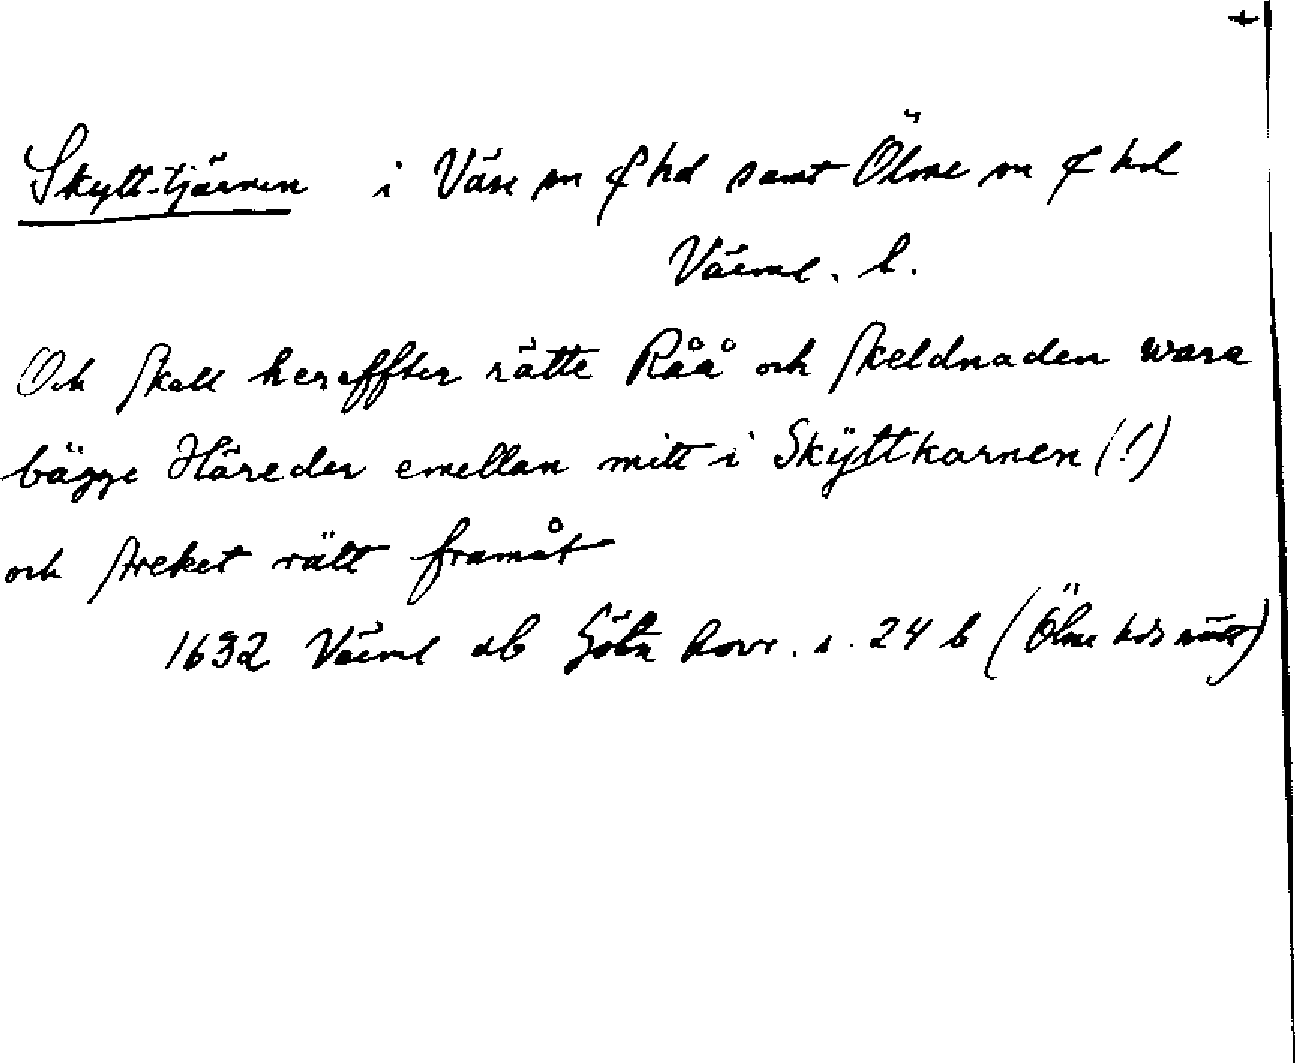 +
Skylltjärnen i Väse sn & hd samt Ölme sn & hd
Värml. l.
Och skall hereffter rätte Råå och skeldnaden wara
bägge Häreder emellan mitt i Skÿttkarnen (!)
och streket rätt framåt
1632 Värml db Göta hovr. s. 24 b (Ölme hds rätt)